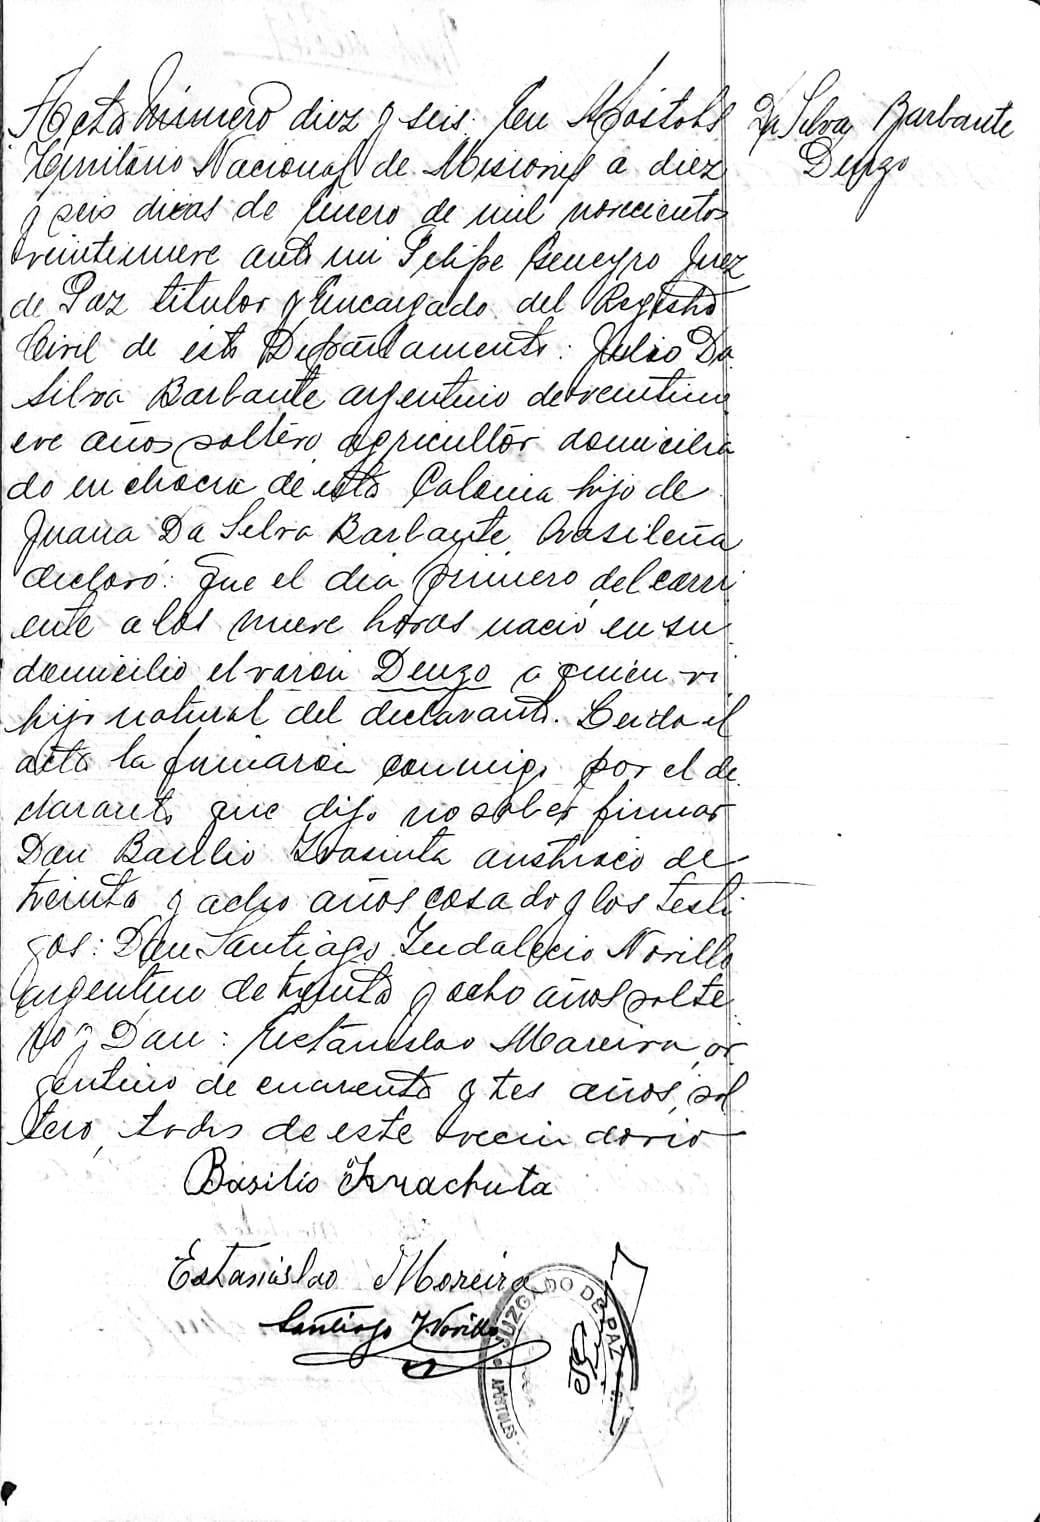 Acta Número diez y seis: En Apóstoles
Territorio Nacional de Misiones a diez
y seis dieas de Enero de mil novecientos
veintenueve ante mi Felipe Geneyro Juez
de Paz titular y Encargado del Registro
Civil de este Departamento: Julio Da
Silva Barbante argentino de veintinu
eve años soltero agricultor domicilia
do en chacra de esta Colonia hijo de
Juana Da Silva Barbante brasileña
declaró: Que el dia primero del corri
ente a las nueve horas nació en su
domicilio el varon Denzo a quien vi
hijo natural del declarante. Leida el
acta la firmaron conmigo por el de
clarante que dijo no saber firmar
Don Basilio austriaco de
treinta y ocho años casado y los testi
gos: Don Santiago Indalecio Norillo
argentino de treinta y ocho años solte
ro y Don: Estanislao Moreira ar
gentino de cuarenta y tes años, sol
tero, todos de este vecindario
Basilio Krrachuta
Estanislao Moreira
Santiago Norillo
JUZGADO DE PAZ
APÓSTOLES
Da Silva Barbante
Denzo